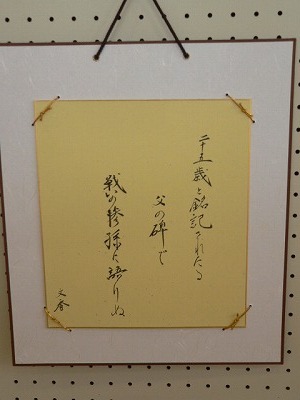 二十五歳と銘記されたる
父の碑で
戦の惨孫に語りぬ
文春